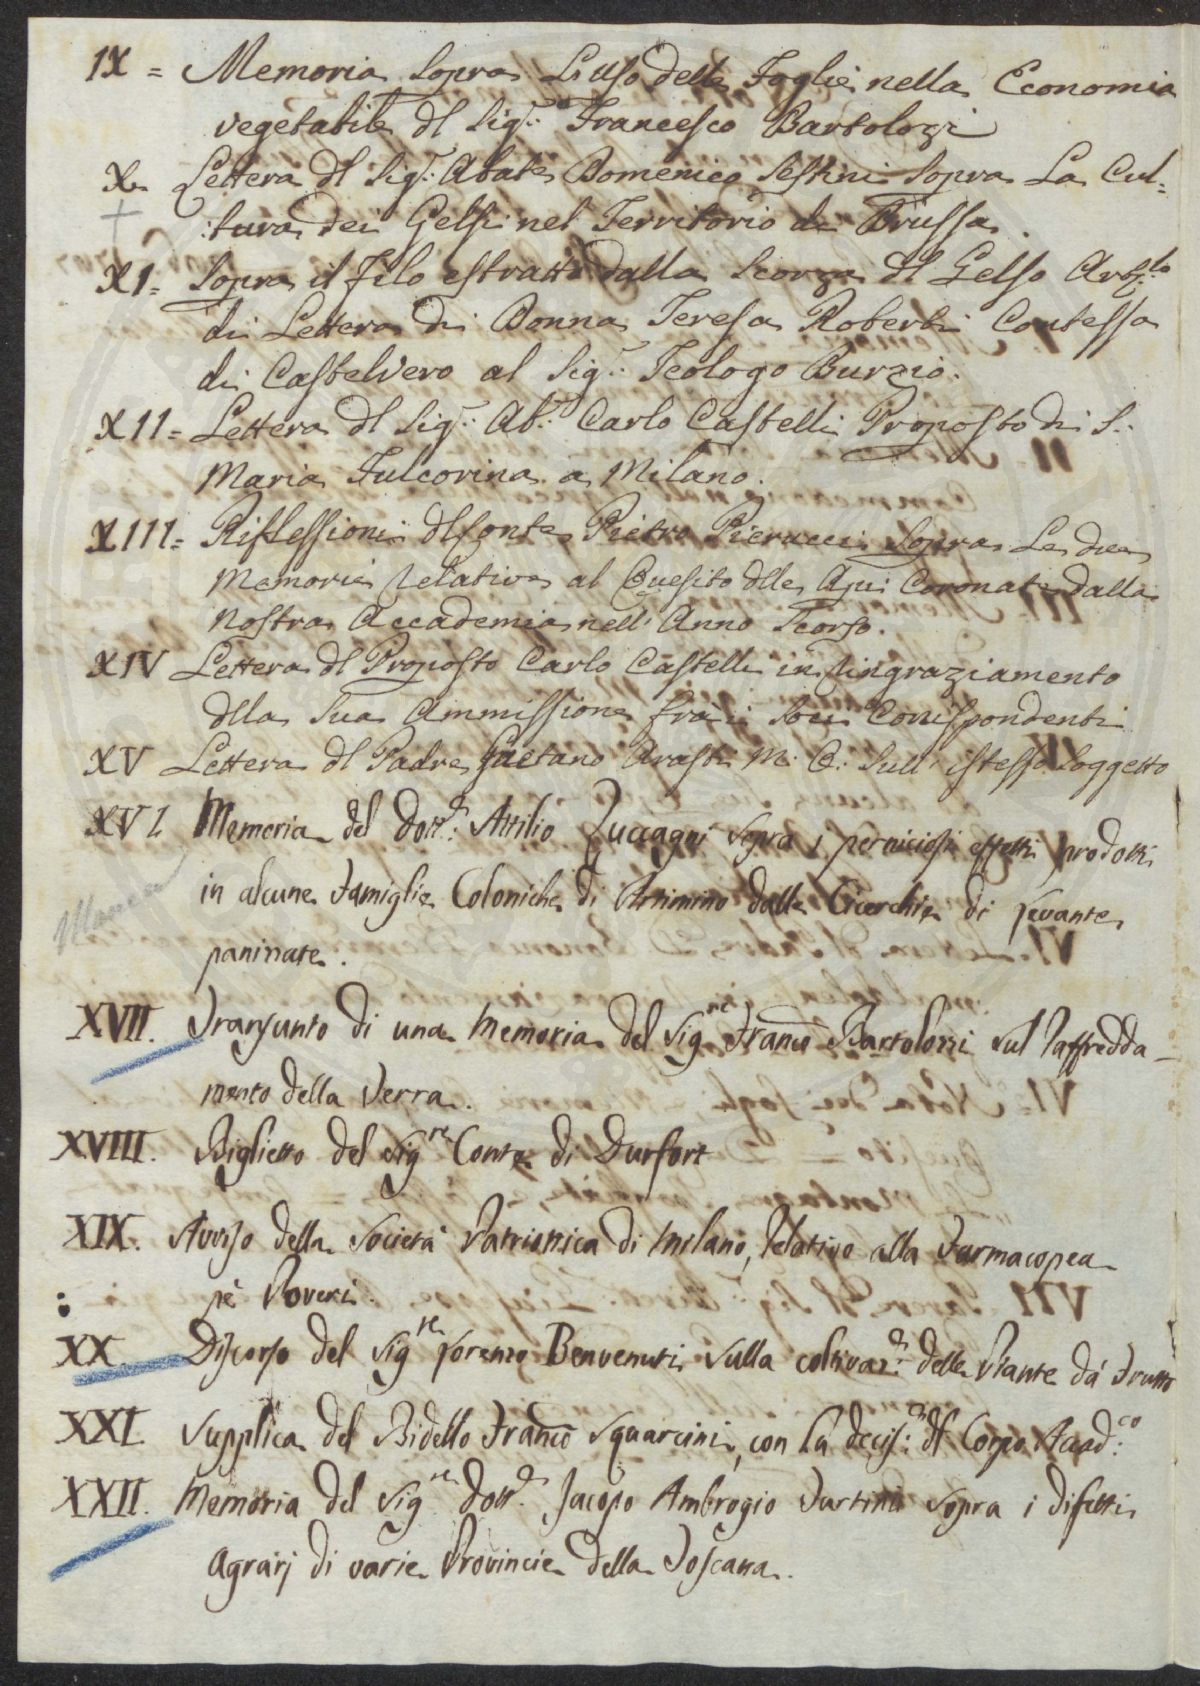 IX = Memoria Sopra L'Uso delle Foglie nella Economia
vegetabile dl Sig.r Francesco Bartolozi
X. Lettera dl Sig.r Abate Domenico Sestini Sopra La Cul=
tura dei Gelsi nel Territorio di Brussa.
XI= Sopra il filo estratto dalla Scorza dl Gelso Artic.lo
di Lettera di Donna Teresa Roberti Contessa
di Castelvero al Sig.r Teologo Burzio.
XII= Lettera dl Sig.r Ab.e Carlo Castelli Proposto di S.
Maria Fulcorina a Milano.
XIII= Riflessioni dl Conte Pietro Pierucci Sopra Le due
Memorie relative al Quesito dlle Api Coronate dalla
Nostra Accademia nell' Anno Scorso.
XIV Lettera dl Proposto Carlo Castelli in ringraziamento
dlla Sua Ammissione fra i Soci Corrispondenti
XV Lettera dl Padre Gaetano Arasti M. O. Sull' istesso Soggetto
XVI Memoria del Dott.e Attilio Zuccagni sopra i perniciosi effetti prodotti
in alcune Famiglie Coloniche di Artimino dalle Cicerchie di Levante
paninate.
Manca
XVII. Transunto di una Memoria del Sig.re Franco Bartolozzi sul Raffredda-
mento della Terra.
XVIII. Biglietto del Sig.re Conte di Durfort
XIX. Avviso della Società Patriottica di Milano, Relativo alla Farmacopea
pè Poveri.
XX. Discorso del Sig.re Lorenzo Benvenuti sulla coltivaz.e delle Piante dà Frutto
XXI. Supplica del Bidello Franco Squarcini, con La decis.e dl Corpo Accad.co
XXII. Memoria del Sig.re Dott.e Jacopo Ambrogio Tartini sopra i difetti
Agrarj di varie Provincie della Toscana.